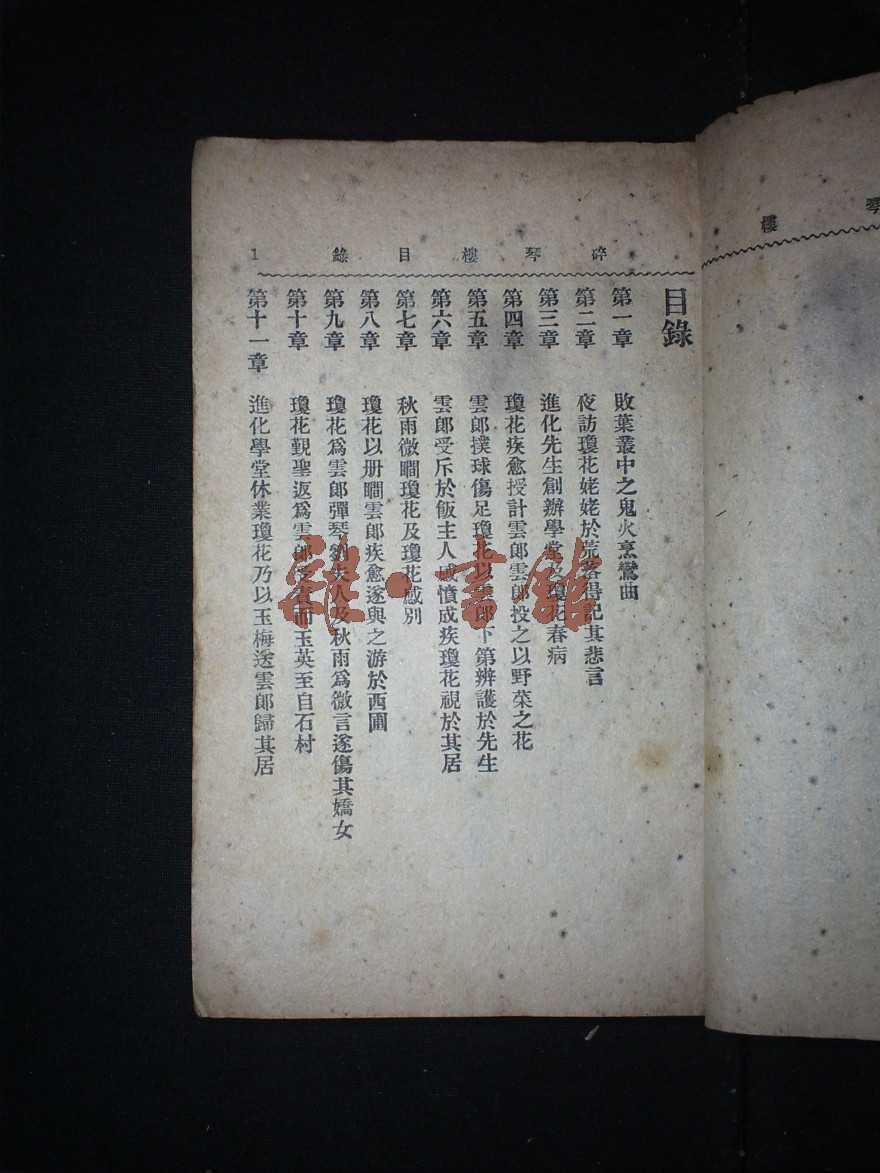 碎琴樓目錄 1
目錄
第一章 敗葉叢中之鬼火烹鸞曲
第二章 夜訪瓊花姥姥於荒落得記其悲言
第三章 進化先生創辦學堂及瓊花春病
第四章 瓊花疾愈授計雲郎雲郎投之以野菜之花
第五章 雲郎撲球傷足瓊花以雲郎下第辨護於先生
第六章 雲郎受斥於飯主人感憤成疾瓊花視於其居
第七章 秋雨微瞷瓊花及瓊花感別
第八章 瓊花以册瞷雲郎疾愈遂與之游於西圃
第九章 瓊花爲雲郎彈琴劉夫人及秋雨爲微言遂傷其嬌女
第十章 瓊花覲聖返爲雲郎而玉英至自石村
第十一章 進化學堂休業瓊花乃以玉梅送雲郎歸其居
琴樓
雜·書館